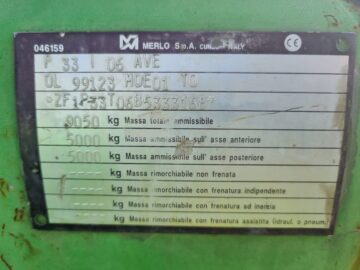 046159
MERLO S.p.A. CUNEO - ITALY
CE
P 33 1 06 AVE
OL 99123 MOE01 TO
9050 kg Massa totale ammissibile
5000 kg Massa ammissibile sull' asse anteriore
5000 kg Massa ammissibile sull' asse posteriore
kg Massa rimorchiabile non frenata
kg Massa rimorchiabile con frenatura indipendente
kg Massa rimorchiabile con frenatura ad inerzia
kg Massa rimorchiabile con frenatura assistita (idraul. o pneum.